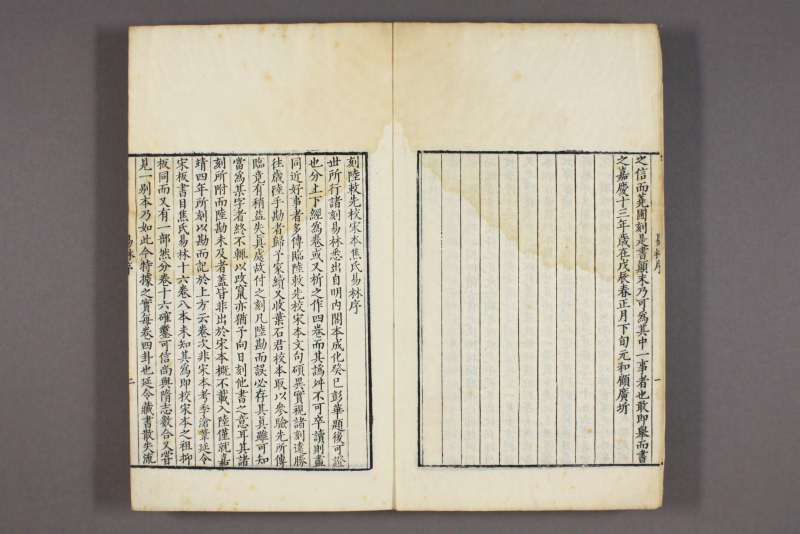 之信而蕘圃刻是書顛末乃可爲其中一事者也敢即舉而書
之嘉慶十三年歲在戊辰春正月下旬元和顧廣圻
易林序
一
刻陸敕先校宋本焦氏易林序
世所行諸刻易林悉出自明内閣本成化癸巳彭華題後可證
也分上下經爲卷或又析之作四卷而其譌舛不可卒讀則盡
同近好事者多傳臨陸敕先校宋本文句碩異實視諸刻遠勝
往歲陸手勘者歸予家續又收葉石君校本取以參驗先所傳
臨竟有稍益失真處故付之刻凡陸勘而誤必存其真雖可知
當爲某字者終不輒以改竄亦猶予向日刻他書之意耳其諸
刻所附而陸勘未及者蓋皆非出於宋本概不載入陸僅就嘉
靖四年所刻以勘而記於上方云卷次非宋本考季滄葦延令
宋板書目焦氏易林十六卷八本未知其爲即校宋本之祖抑
板同而又有一部然分卷十六確鑿可信尚與隋志數合又嘗
見一別本乃如此今特據之實每卷四卦也延令藏書散失流
易林序
二